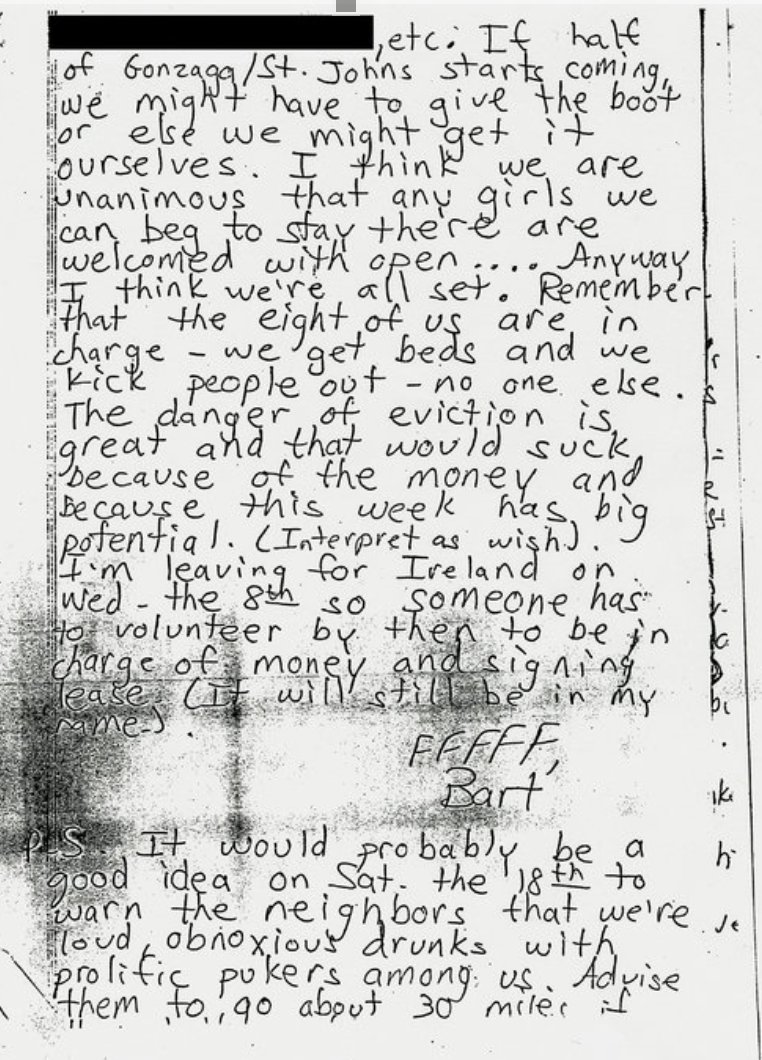 ,etc. If half
of Gonzaga/St. Johns starts coming,
we might have to give the boot
or else we might get it
ourselves. I think we are
unanimous that any girls we
can beg to stay there are
welcomed with open.... Anyway
I think we're all set. Remember
that the eight of us are in
charge - we get beds and we
kick people out - no one else.
The danger of eviction is
great and that would suck
because of the money and
because this week has big
potential. (Interpret as wish).
I'm leaving for Ireland on
Wed - the 8th so someone has
to volunteer by then to be in
charge of money and signing
lease. (It will still be in my
name.)
FFFFF,
Bart
P.S. It would probably be a
good idea on Sat. the 18th to
warn the neighbors that we're
loud, obnoxious drunks with
prolific pukers among us. Advise
them to go about 30 miles if